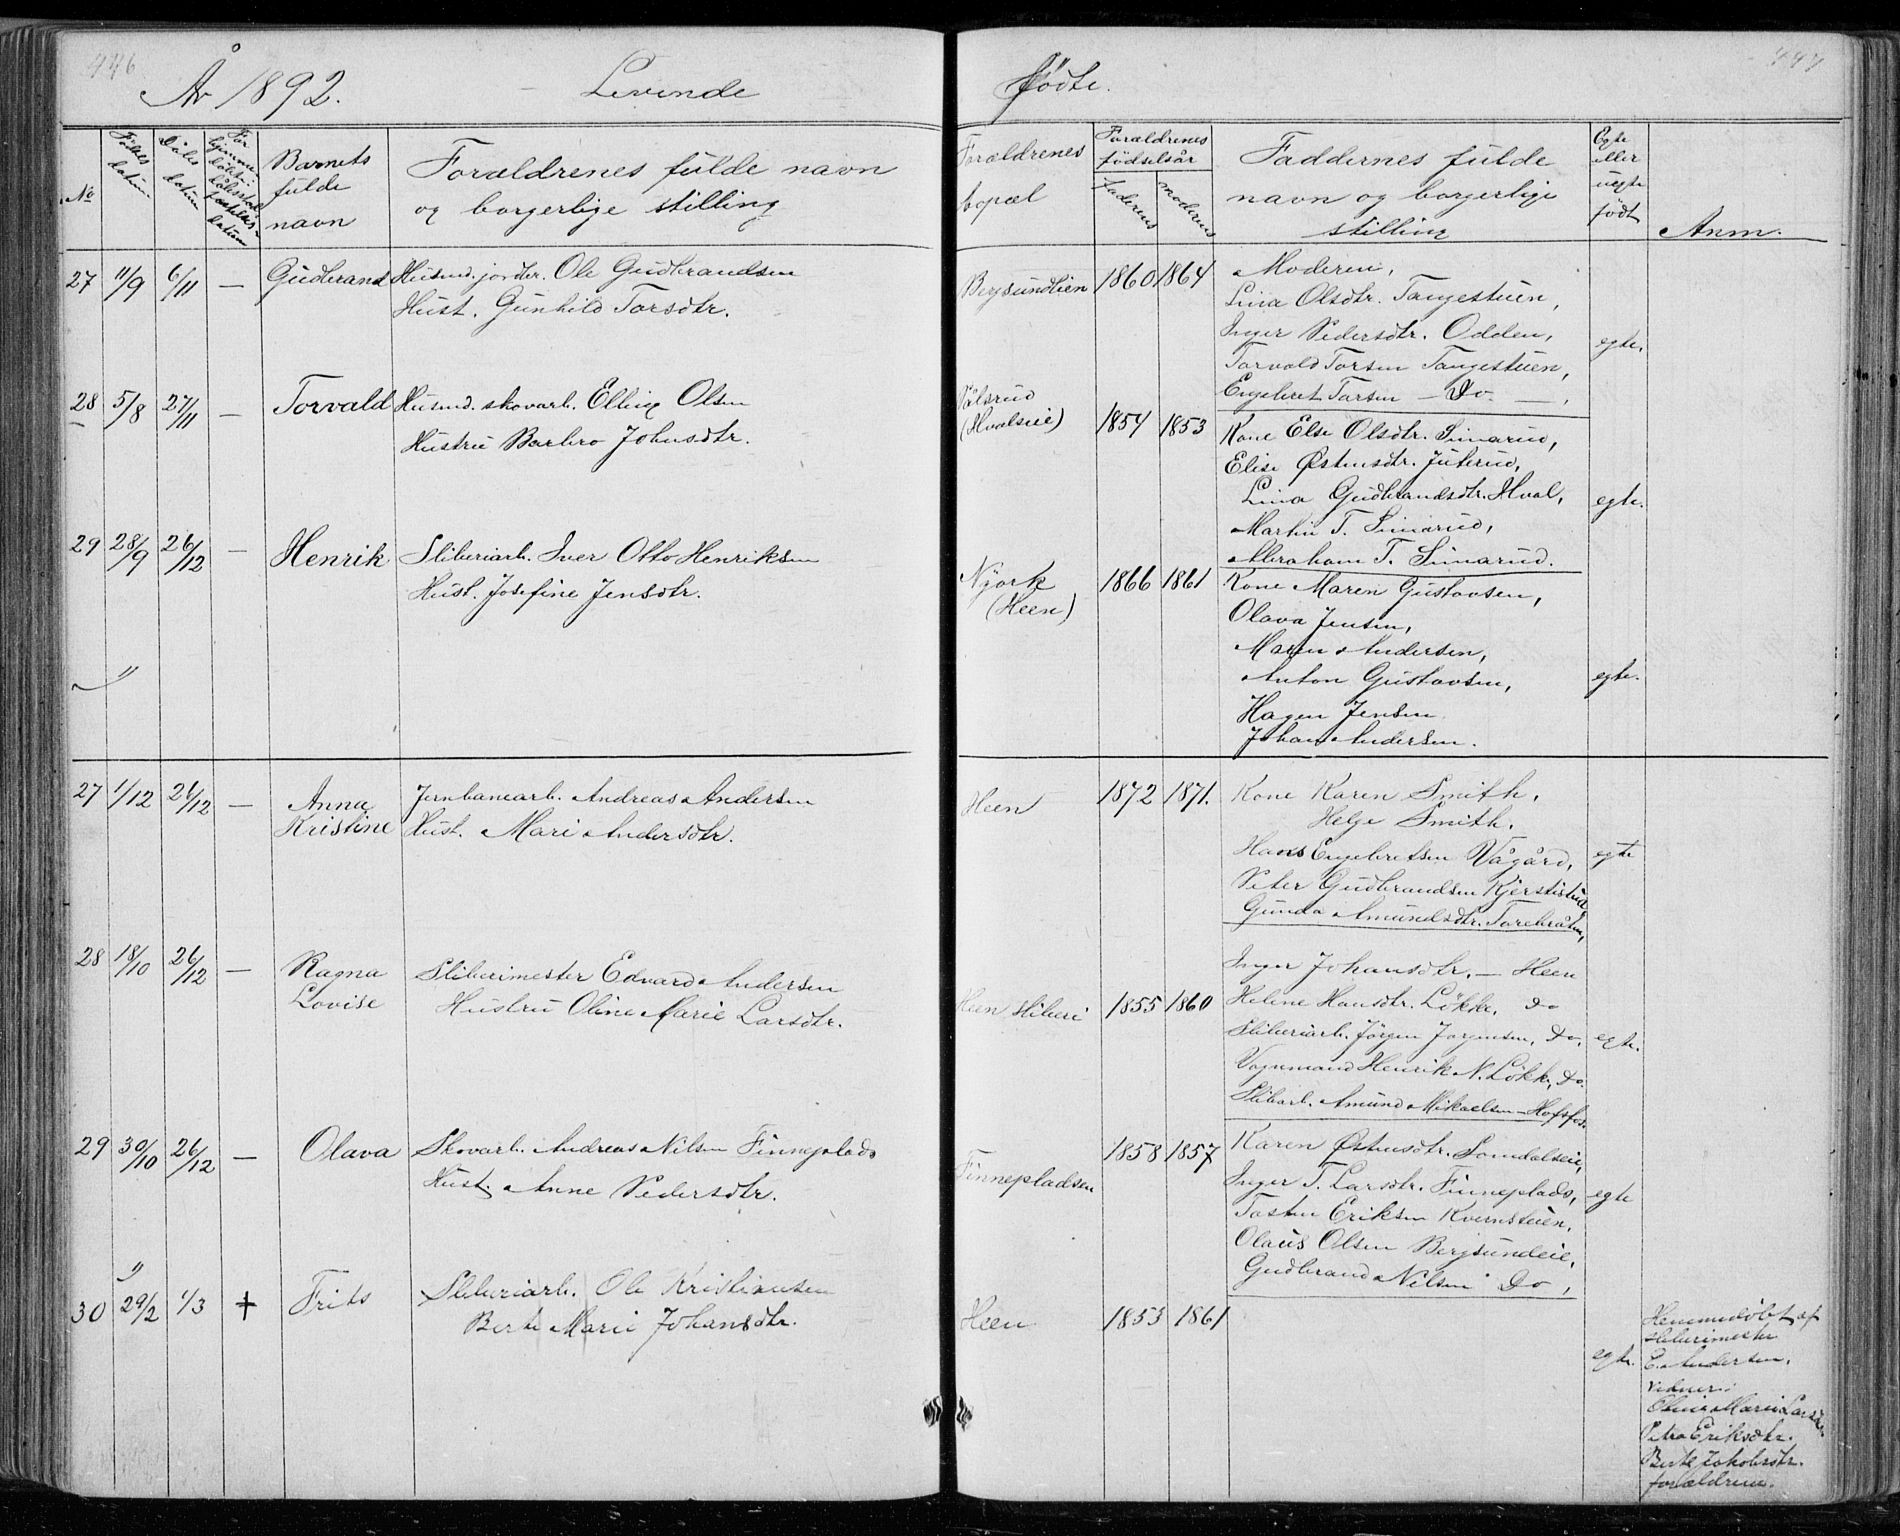 446
År 1892. Levinde
No
Fødsels
datum
Dåbs
datum
Barnets
fulde
navn
Forældrenes fulde navn
og borgerlige stilling
27 11/9 6/11 — Gudbrand Husmd. jordbr. Ole Gudbrandsen
Hust. Gunhild Torsdtr.
28 5/8 27/11 — Torvald Husmd. skovarb. Elling Olsen
Hustru Barbro Johnsdtr.
29 28/9 26/12 — Henrik Sliberiarb. Iver Otto Henriksen
Hust. Josefine Jensdtr.
27 1/12 26/12 — Anna Jernbanearb. Andreas Andersen
Kristine Hust. Mari Andersdtr.
28 18/10 26/12 — Ragna Sliberimester Edvard Andersen
Lovise Hustru Oline Marie Larsdtr.
29 30/10 26/12 — Olava Skovarb. Andreas Nilsen Finneplads
Hust. Anne Pedersdtr.
30 29/2 1/3 + Frits Sliberiarb. Ole Kristiansen
Berte Marie Johansdtr.
447
Fødte.
Forældrenes
bopæl
Forældrenes
fødselsår
faderens
moderens
Faddernes fulde
navn og borgerlige
stilling
Egte
eller
uegte
født
Anm.
Bergsundlien 1860 1864 Moderen,
Lina Olsdtr. Tangestuen,
Inger Pedersdtr. Odden,
egte.
Torvald Torsen Tangestuen,
Engebret Torsen — Do —,
Pålsrud
(Hvalseie) 1854 1853 Kone Else Olsdtr. Simarud,
Elise Østensdtr. Juterud,
Lina Gudbrandsdtr. Hval, egte.
Martin T. Simarud,
Abraham T. Simarud.
Nyork
(Heen) 1866 1861 Kone Maren Gustavsen,
Olava Jensen,
Maren Andersen,
Anton Gustavsen, egte.
Hagen Jensen
Johan Andersen.
Heen 1872 1871. Kone Karen Smith,
Helge Smith.
Hans Engebretsen Vågård, egte
Peter Gudbrandsen Kjerstistud
Gunda Amundsdtr. Torebråten,
Inger Johansdtr. — Heen
Heen sliberi 1855 1860 Helene Hansdtr. Løkke, do
Sliberiarb. Jörgen Jorgensen, do, egte.
Vognmand Henrik N. Løkk., do.
Slibarb. Amund Mikaelsen — Hofsfos.
Finnepladsen 1858 1857 Karen Østensdtr. Somdalseie,
Inger T. Larsdtr. Finneplads, egte
Tosten Eriksen Kvernstuen,
Olaus Olsen Bergsundeie,
Gudbrand Nilsen Do,
Heen 1853 1861 egte.
Hjemmedöbt af
sliberimester
E. Andersen.
Vidner:
Oline Marie Larsdtr.
Petra Eriksdtr.
Berte Jakobsdtr.
forældrene.